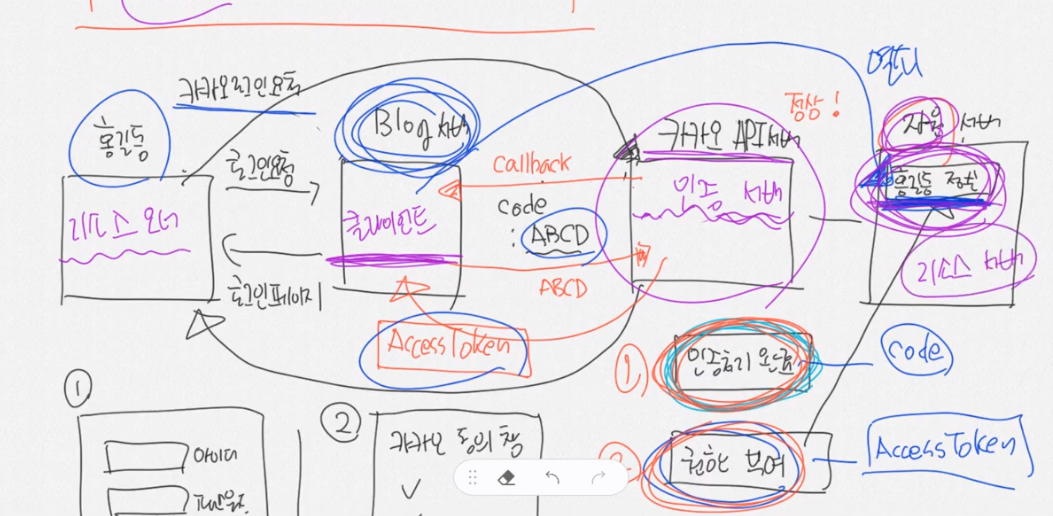 카카오로그인요청
홍길동
리소스 오너
로그인요청
로그인페이지
Blog 서버
클라이언트
Callback
code
: ABCD
ABCD
AccessToken
카카오 API서버
인증 서버
정상!
자원 서버
홍길동 정보
리소스 서버
① 인증처리 완료
code
② 권한 부여
AccessToken
①
아이디
②
카카오 동의 창